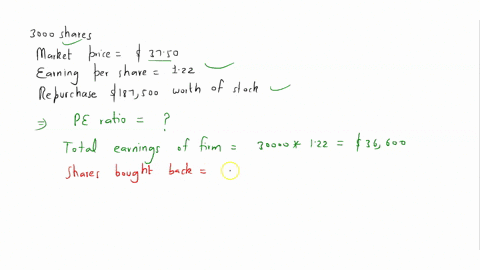 3000 shares
Market price = $ 37.50
Earning per share = 1.22
Repurchase $187,500 worth of stock
⇒ PE ratio = ?
Total earnings of firm = 30000 * 1.22 = $36,600
Shares bought back =